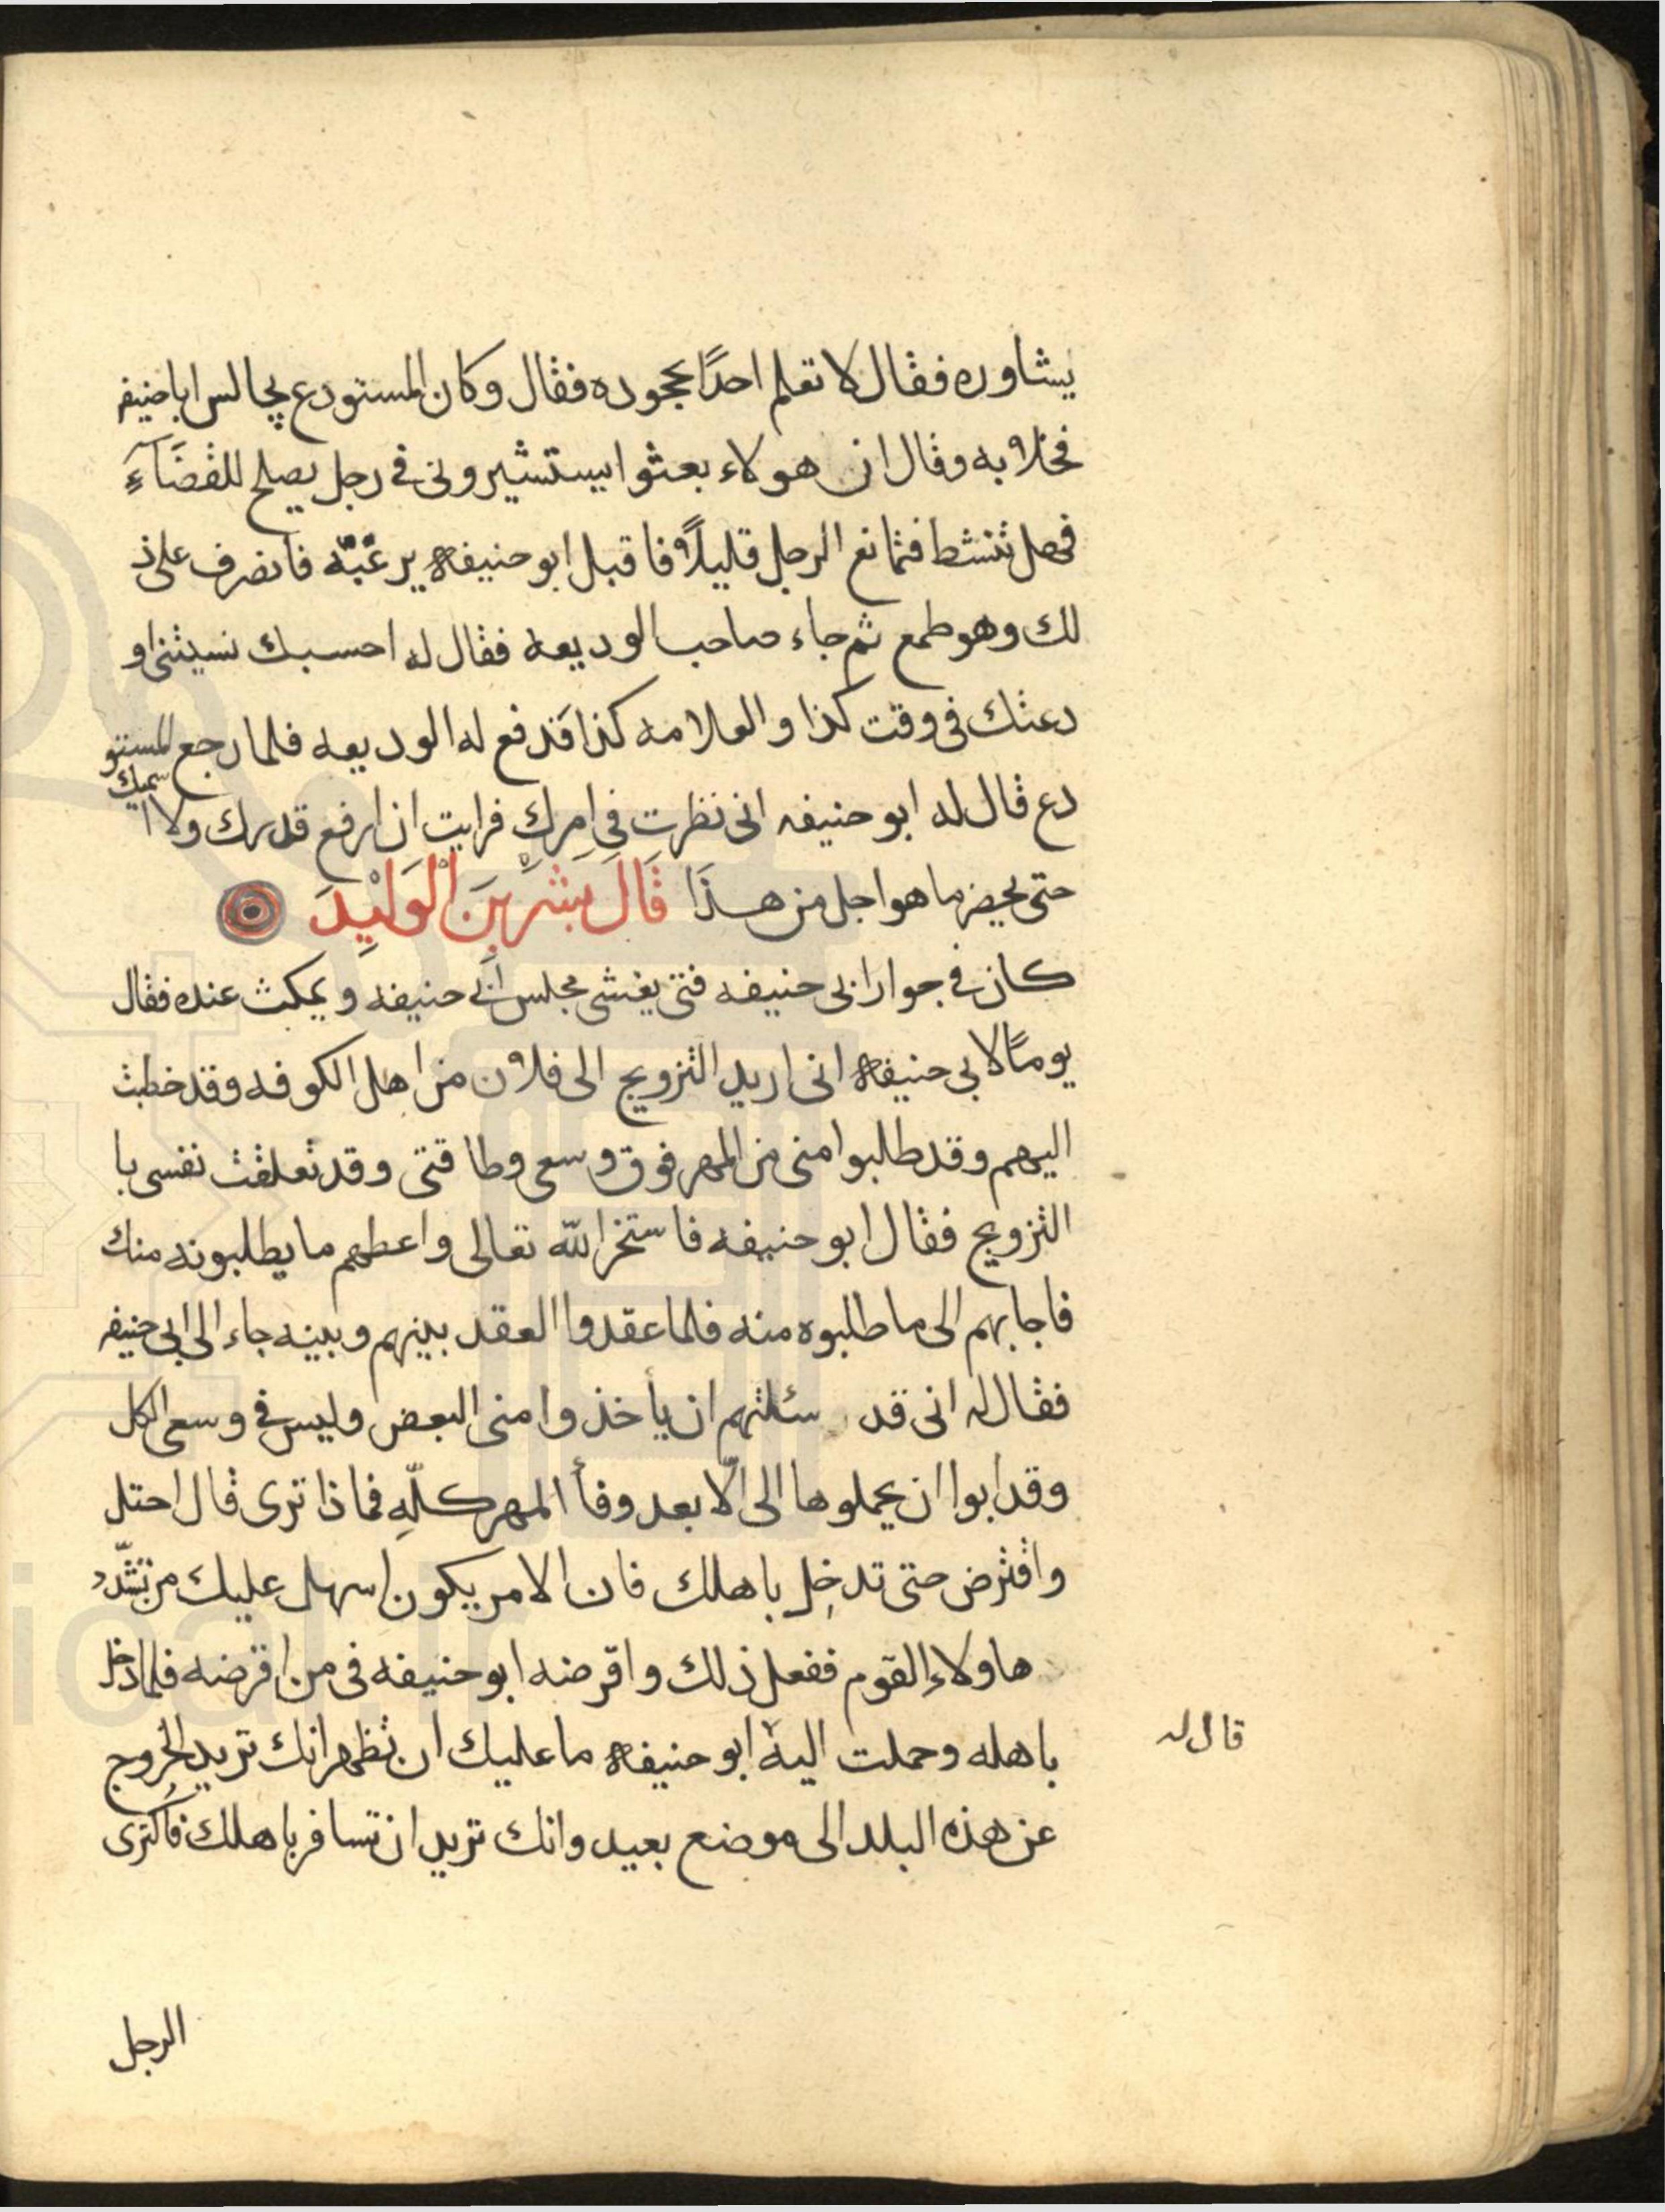 يشاوره فقال لا تعلم احدًا بجحوده فقال وكان المستودع يجالس اباحنيفه
فخلا به وقال ان هولاء بعثوا يستشيرونى فى رجل يصلح للقضآء
فهل تنشط فتمانع الرجل قليلاً فاقبل ابو حنيفه يرغّبّه فانصرف على ذ
لك وهو طمع ثم جاء صاحب الوديعه فقال له احسبك نسيتنى او
دعتك فى وقت كذا والعلامه كذا فدفع له الوديعه فلما رجع المستو
دع قال له ابو حنيفه انى نظرت فى امرك فرايت ان ارفع قدرك ولا اسميك
حتى يحضر ما هو اجل من هذا قَالَ بَشَرِ بِنَ الْوَلِيْدَ
كان فى جوار ابى حنيفه فتى يغشى مجلس ابى حنيفه ويمكث عنده فقال
يومًا لابى حنيفه انى اريد التزويج الى فلان من اهل الكوفه وقد خطبت
اليهم وقد طلبوا منى من المهر فوق وسعى وطاقتى وقد تعلقت نفسى با
التزويج فقال ابو حنيفه فاستخر الله تعالى واعطهم ما يطلبونه منك
فاجابهم الى ما طلبوه منه فلما عقدوا العقد بينهم وبينه جاء الى ابى حنيفه
فقال له انى قد سئلتهم ان ياخذوا منى البعض وليس فى وسعى الكل
وقد ابوا ان يحملوها الى الّا بعد وفأ المهر كلّهِ فماذا ترى قال احتل
واقترض حتى تدخل باهلك فان الامر يكون اسهل عليك من تشّدد
هاولاء القوم ففعل ذلك واقرضه ابو حنيفه فى من اقرضه فلما دخل
باهله وحملت اليه ابو حنيفه ما عليك ان تظهر انك تريد الخروج
قال له
عن هذه البلد الى موضع بعيد وانك تريد ان تسافر باهلك فاكترى
الرجل